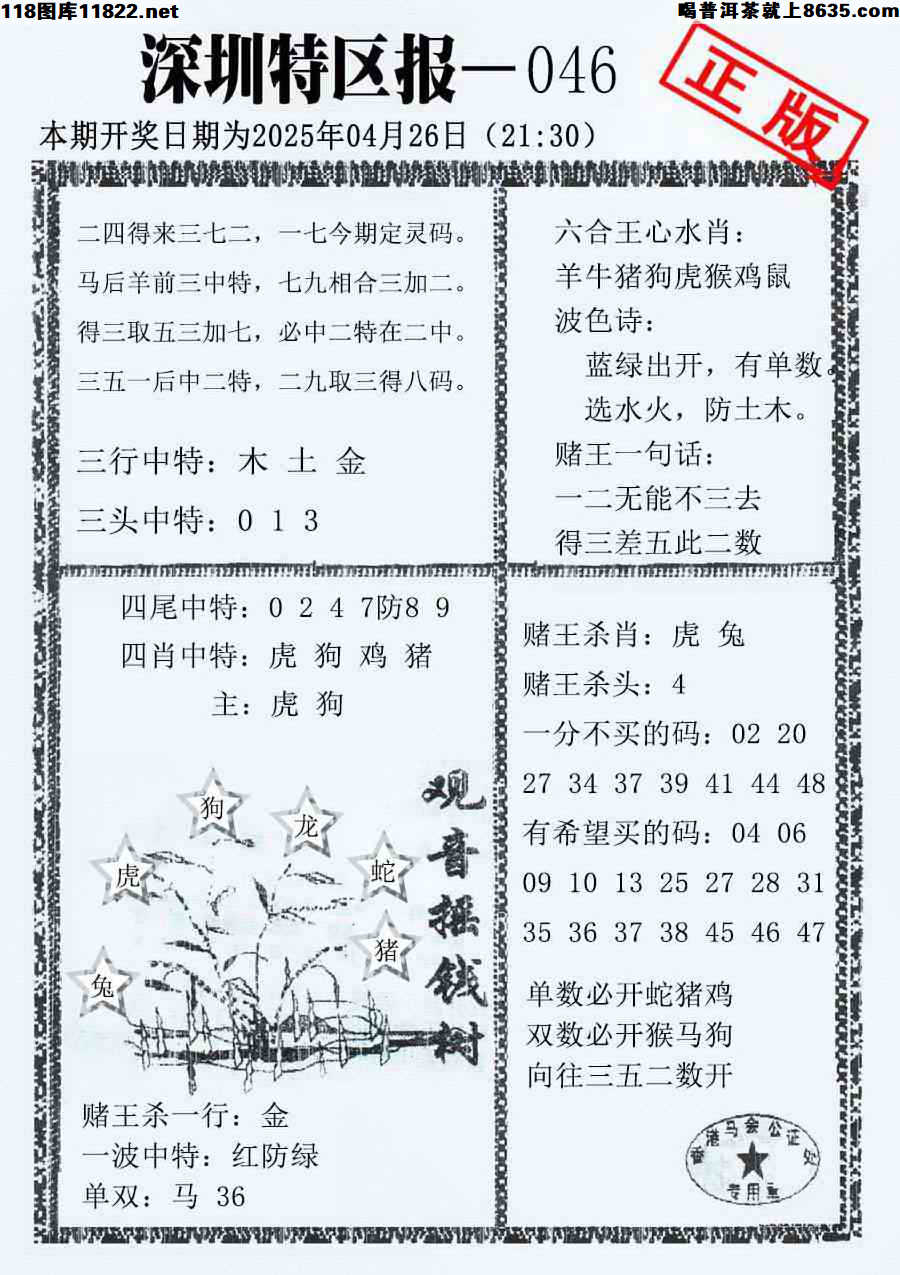 118图库11822.net
喝普洱茶就上8635.com
深圳特区报—046
正版
本期开奖日期为2025年04月26日（21:30）
二四得来三七二，一七今期定灵码。
马后羊前三中特，七九相合三加二。
得三取五三加七，必中二特在二中。
三五一后中二特，二九取三得八码。
三行中特：木 土 金
三头中特：0 1 3
六合王心水肖：
羊牛猪狗虎猴鸡鼠
波色诗：
蓝绿出开，有单数。
选水火，防土木。
赌王一句话：
一二无能不三去
得三差五此二数
四尾中特：0 2 4 7防8 9
四肖中特：虎 狗 鸡 猪
主：虎 狗
狗
龙
虎
蛇
猪
兔
观音摇钱树
赌王杀一行：金
一波中特：红防绿
单双：马 36
赌王杀肖：虎 兔
赌王杀头：4
一分不买的码：02 20
27 34 37 39 41 44 48
有希望买的码：04 06
09 10 13 25 27 28 31
35 36 37 38 45 46 47
单数必开蛇猪鸡
双数必开猴马狗
向往三五二数开
港马会公证
专用